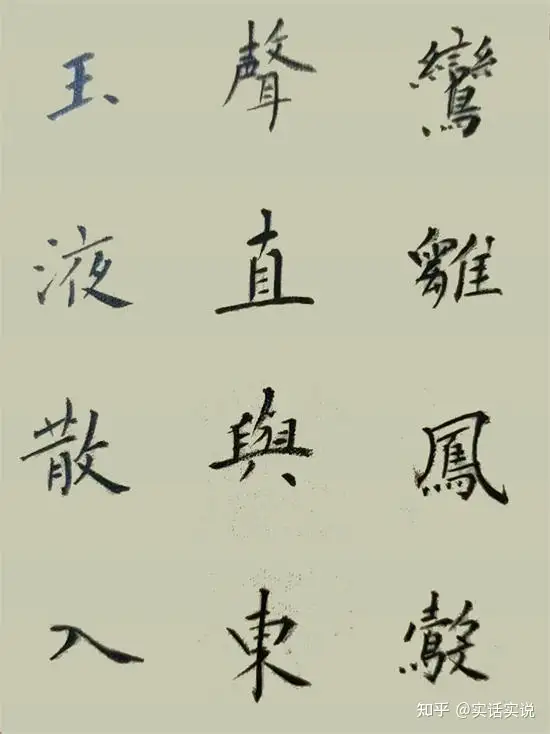 鸞雛鳳鷇
聲直與東
玉液散入
知乎 @实话实说